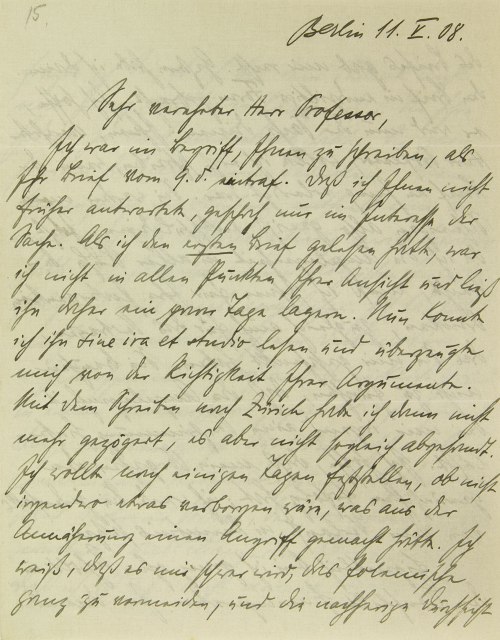 15.
Berlin 11. V. 08.
Sehr verehrter Herr Professor,
Ich war im Begriff, Ihnen zu schreiben, als
Ihr Brief vom 9. d. eintraf. Daß ich Ihnen nicht
früher antwortete, geschah nur im Interesse der
Sache. Als ich den ersten Brief gelesen hatte, war
ich nicht in allen Punkten Ihrer Ansicht und ließ
ihn daher ein paar Tage lagern. Nun konnte
ich ihn sine ira et studio lesen und überzeugte
mich von der Richtigkeit Ihrer Argumente.
Mit dem Schreiben nach Zürich habe ich dann nicht
mehr gezögert, es aber nicht sogleich abgesandt.
Ich wollte nach einigen Tagen feststellen, ob nicht
irgendwo etwas verborgen wäre, was aus der
Annäherung einen Angriff gemacht hätte. Ich
weiß, daß es mir schwer wird, das Polemische
ganz zu vermeiden, und die nachherige Durchsicht